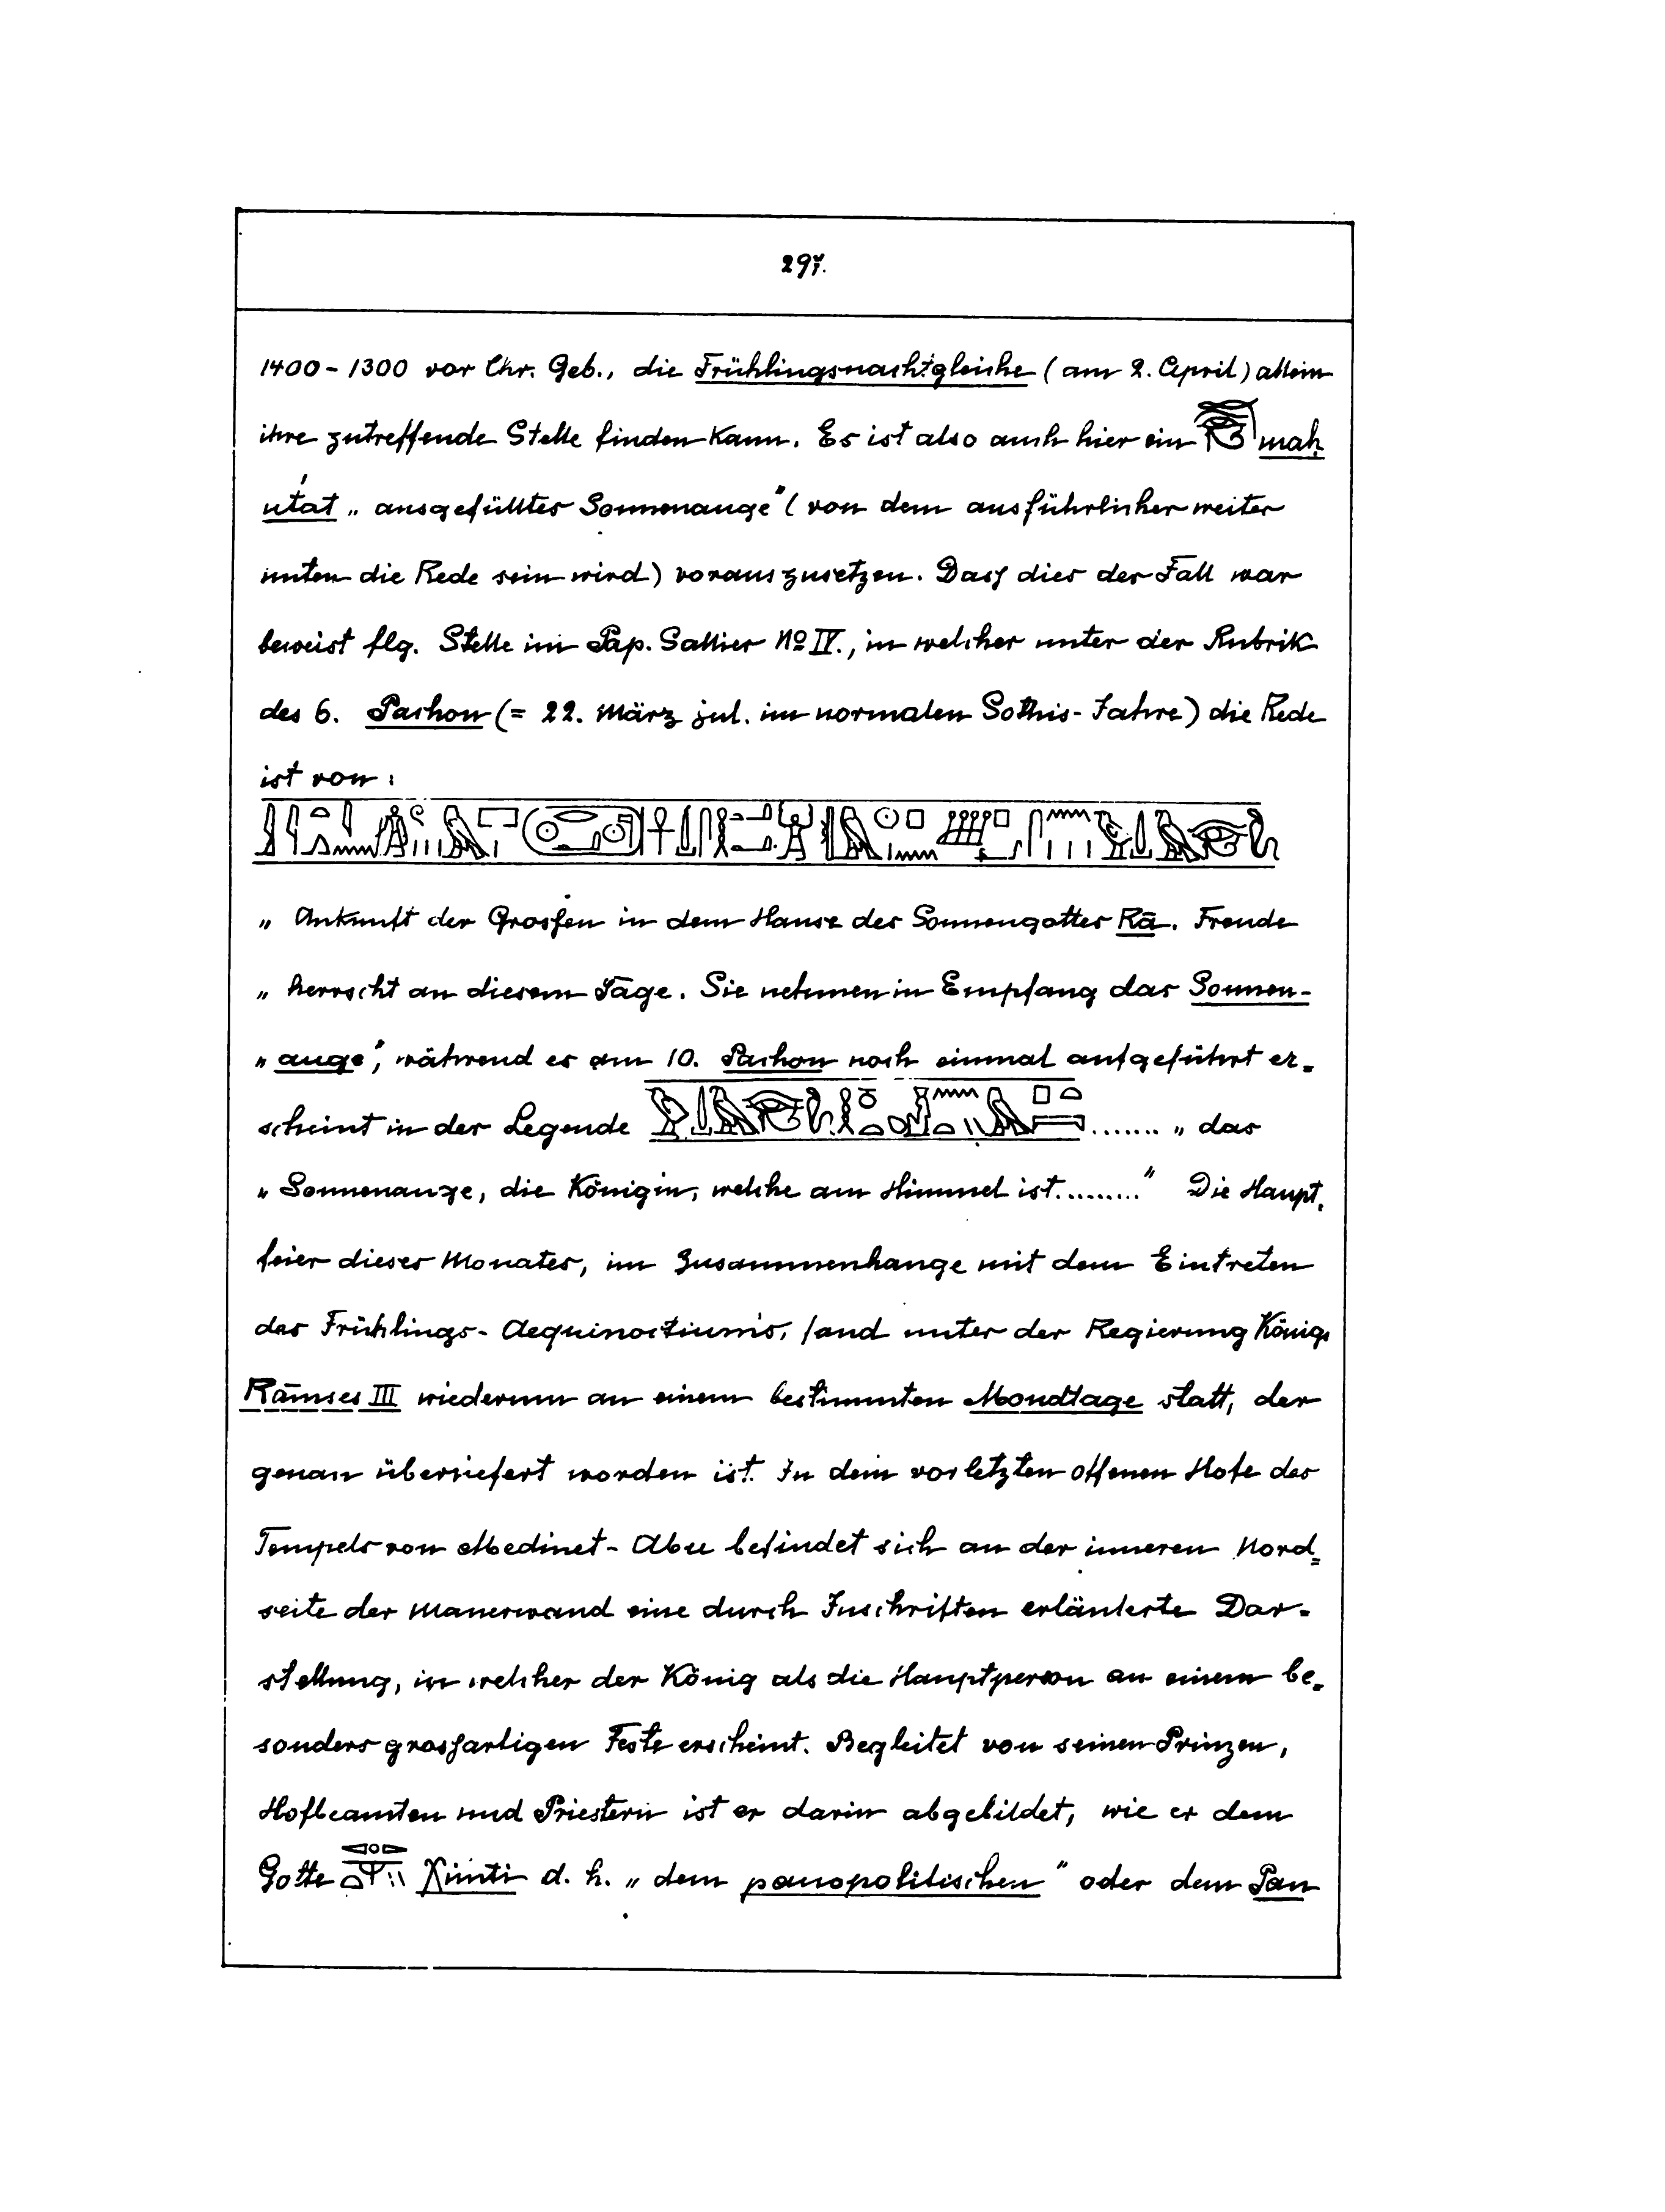 297.
1400 - 1300 vor Chr. Geb., die Frühlingsnachtgleiche (am 2. April) allein
ihre zutreffende Stelle finden kann. Es ist also auch hier ein maḥ
utat „ausgefülltes Sonnenauge“ (von dem ausführlicher weiter
unten die Rede sein wird) vorauszusetzen. Dass dies der Fall war
beweist flg. Stelle im Pap. Sallier No IV., in welcher unter der Rubrik
des 6. Pachon (= 22. März jul. im normalen Sothis-Jahre) die Rede
ist von:
„ Ankunft der Grossen in dem Hause des Sonnengottes Rā. Freude
„ herrscht an diesem Tage. Sie nehmen in Empfang das Sonnen-
„ auge“, während es am 10. Pachon noch einmal aufgeführt er-
scheint in der Legende ....... „das
„ Sonnenauge, die Königin, welche am Himmel ist........." Die Haupt-
feier dieses Monates, im Zusammenhange mit dem Eintreten
des Frühlings-Aequinoctiums, fand unter der Regierung Königs
Rāmses III wiederum an einem bestimmten Mondtage statt, der
genau überliefert worden ist. In dem vorletzten offenen Hofe des
Tempels von Medinet-Abu befindet sich an der inneren Nord-
seite der Mauerwand eine durch Inschriften erläuterte Dar-
stellung, in welcher der König als die Hauptperson an einem be-
sonders grossartigen Feste erscheint. Begleitet von seinen Prinzen,
Hofbeamten und Priestern ist er darin abgebildet, wie er dem
Gotte d. h. „dem panopolitischen“ oder dem Pan